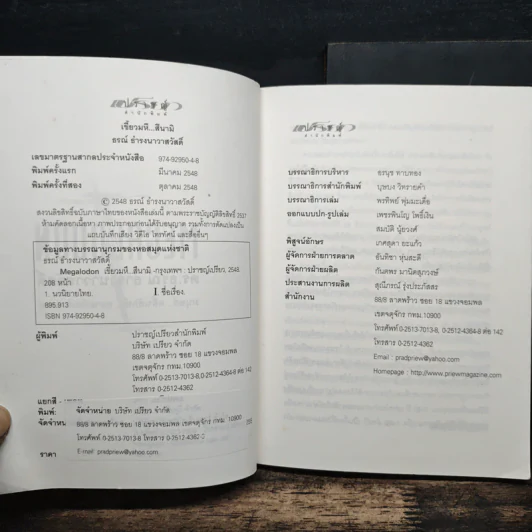 สำนักพิมพ์
เขี้ยวมหึ...สึนามิ
ธรณ์ ธำรงนาวาสวัสดิ์
เลขมาตรฐานสากลประจำหนังสือ 974-92950-4-8
พิมพ์ครั้งแรก มีนาคม 2548
พิมพ์ครั้งที่สอง ตุลาคม 2548
© 2548 ธรณ์ ธำรงนาวาสวัสดิ์
สงวนลิขสิทธิ์ฉบับภาษาไทยของหนังสือเล่มนี้ ตามพระราชบัญญัติลิขสิทธิ์ 2537
ห้ามคัดลอกเนื้อหา ภาพประกอบก่อนได้รับอนุญาต รวมทั้งการดัดแปลงเป็น
แถบบันทึกเสียง วิดีโอ โทรทัศน์ และสื่ออื่นๆ
ข้อมูลทางบรรณานุกรมของหอสมุดแห่งชาติ
ธรณ์ ธำรงนาวาสวัสดิ์
Megalodon เขี้ยวมหึ...สึนามิ.-กรุงเทพฯ : ปราชญ์เปรียว, 2548.
208 หน้า
1. นวนิยายไทย. I ชื่อเรื่อง.
895.913
ISBN 974-92950-4-8
ผู้พิมพ์ ปราชญ์เปรียวสำนักพิมพ์
บริษัท เปรียว จำกัด
88/8 ลาดพร้าว ซอย 18 แขวงจอมพล
เขตจตุจักร กทม.10900
โทรศัพท์ 0-2513-7013-8,0-2512-4364-8 ต่อ 142
โทรสาร 0-2512-4362
แยกสี -
พิมพ์: จัดจำหน่าย บริษัท เปรียว จำกัด
จัดจำหน 88/8 ลาดพร้าว ซอย 18 แขวงจอมพล เขตจตุจักร กทม. 10900
โทรศัพท์ 0-2513-7013-8 โทรสาร 0-2512-4362
ราคา E-mail: pradpriew@yahoo.com
สำนักพิมพ์
บรรณาธิการบริหาร อรนุช ทาบทอง
บรรณาธิการสำนักพิมพ์ บุหบง วิพรายคำ
บรรณาธิการเล่ม พรทิพย์ พุ่มมะเดื่อ
ออกแบบปก-รูปเล่ม เพชรพิณญ โพธิ์เงิน
สมบัติ นุ้ยวงศ์
พิสูจน์อักษร เกศสุดา อะแก้ว
ผู้จัดการฝ่ายการตลาด อันทิชา หุ่นสะดี
ผู้จัดการฝ่ายผลิต กันตพร มานิตสุภวงษ์
ประสานงานการผลิต สุณีภรณ์ รุ่งประภัสสร
สำนักงาน 88/8 ลาดพร้าว ซอย 18 แขวงจอมพล
เขตจตุจักร กทม.10900
โทรศัพท์ 0-2513-7013-8, 0-2512-4364-8 ต่อ 142
โทรสาร 0-2512-4362
Email : pradpriew@yahoo.com
Homepage : http://www.priewmagazine.com